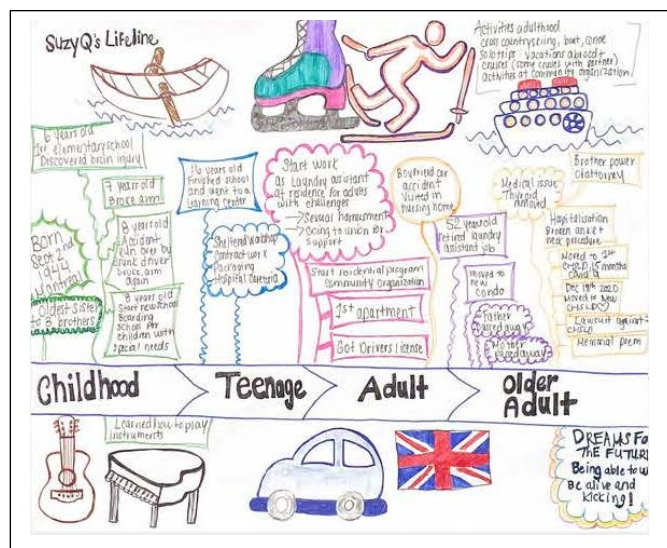 SuzyQ's Lifeline
Activities adulthood
cross country skiing, boat, canoe
solo trips vacations abroad +
cruises (some cruises with partner)
activities at community organization
6 years old
1st elementary school
Discovered brain injury
7 years old
Broke arm
Born
Sept 2nd
1944
Montreal
8 years old
Accident
run over by
drunk driver
broke arm
again
Oldest sister
to 3 brothers
8 years old
Start new
Boarding
School for
children with
special needs
16 years old
Finished school
and went to a
Learning center
Sheltered workshop
Contract work
Packaging
Hospital cafeteria
Start work
as Laundry assistant
at residence for adults
with challenges
→ Sexual harassment
→ Going to union for
support
Start residential program
community organization
1st apartment
Got Drivers license
Boyfriend car
accident
lived in
nursing home
52 years old
retired laundry
assistant job
Moved to
new
condo
Father
passed away
Mother
passed away
Medical issue
Thyroid
removed
Brother power
of attorney
Hospitalisation
Broken ankle +
neck procedure
Moved to 1st
CHSLD, 15 months
Covid 19
Dec 18th 2020
Moved to new
CHSLD
Lawsuit against
CHSLD
Memorial poem
Childhood
Teenage
Adult
Older
Adult
Learned how to play
instruments
DREAMS FO
THE FUTURE
Being able to
Be alive and
kicking!